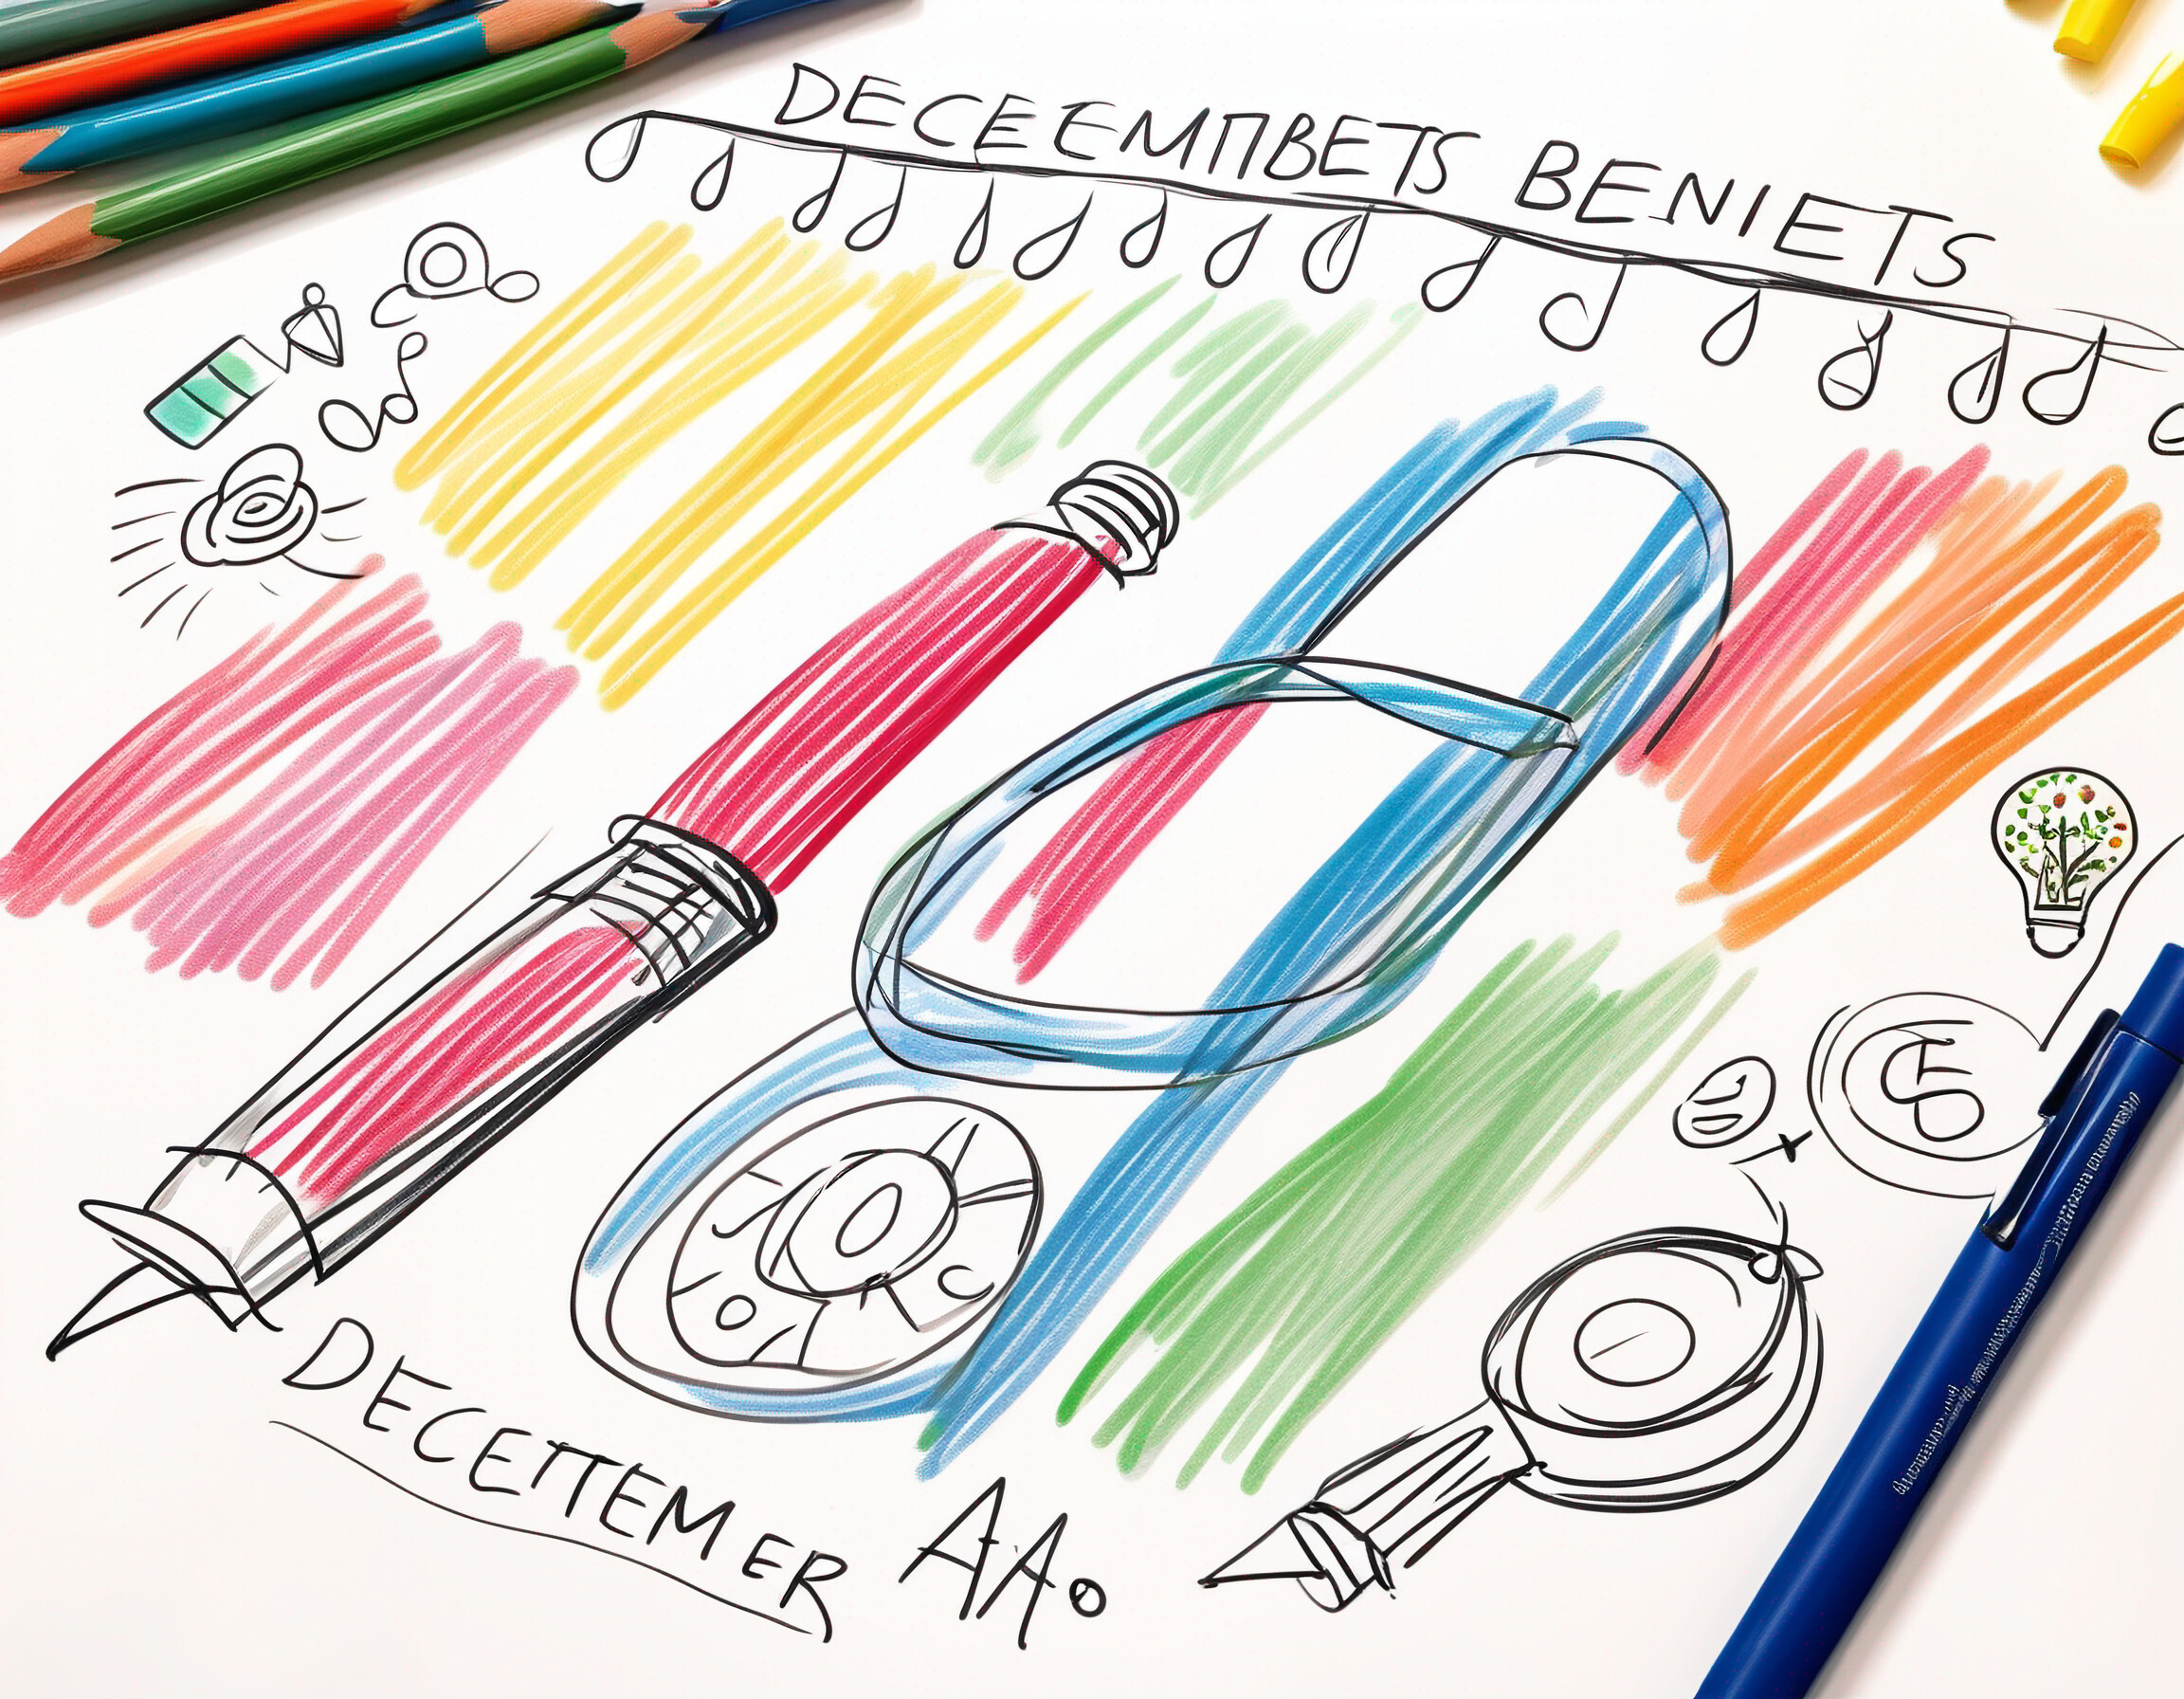 DECEEMПBETS BENIETS
DECETTEMER
AAo